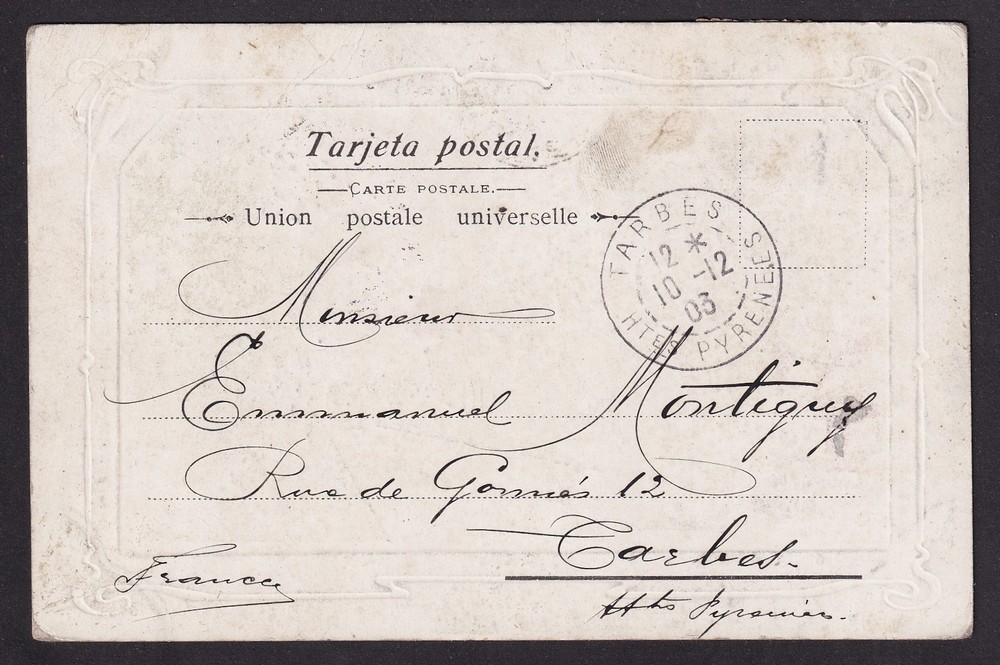 Tarjeta postal.
CARTE POSTALE.
Union postale universelle
TARBES
12 *
10 -12
03
HTES PYRENÉES
Monsieur
Emmanuel Montigny
Rue de Gonnès 12
Tarbes.
Htes Pyrenées.
France